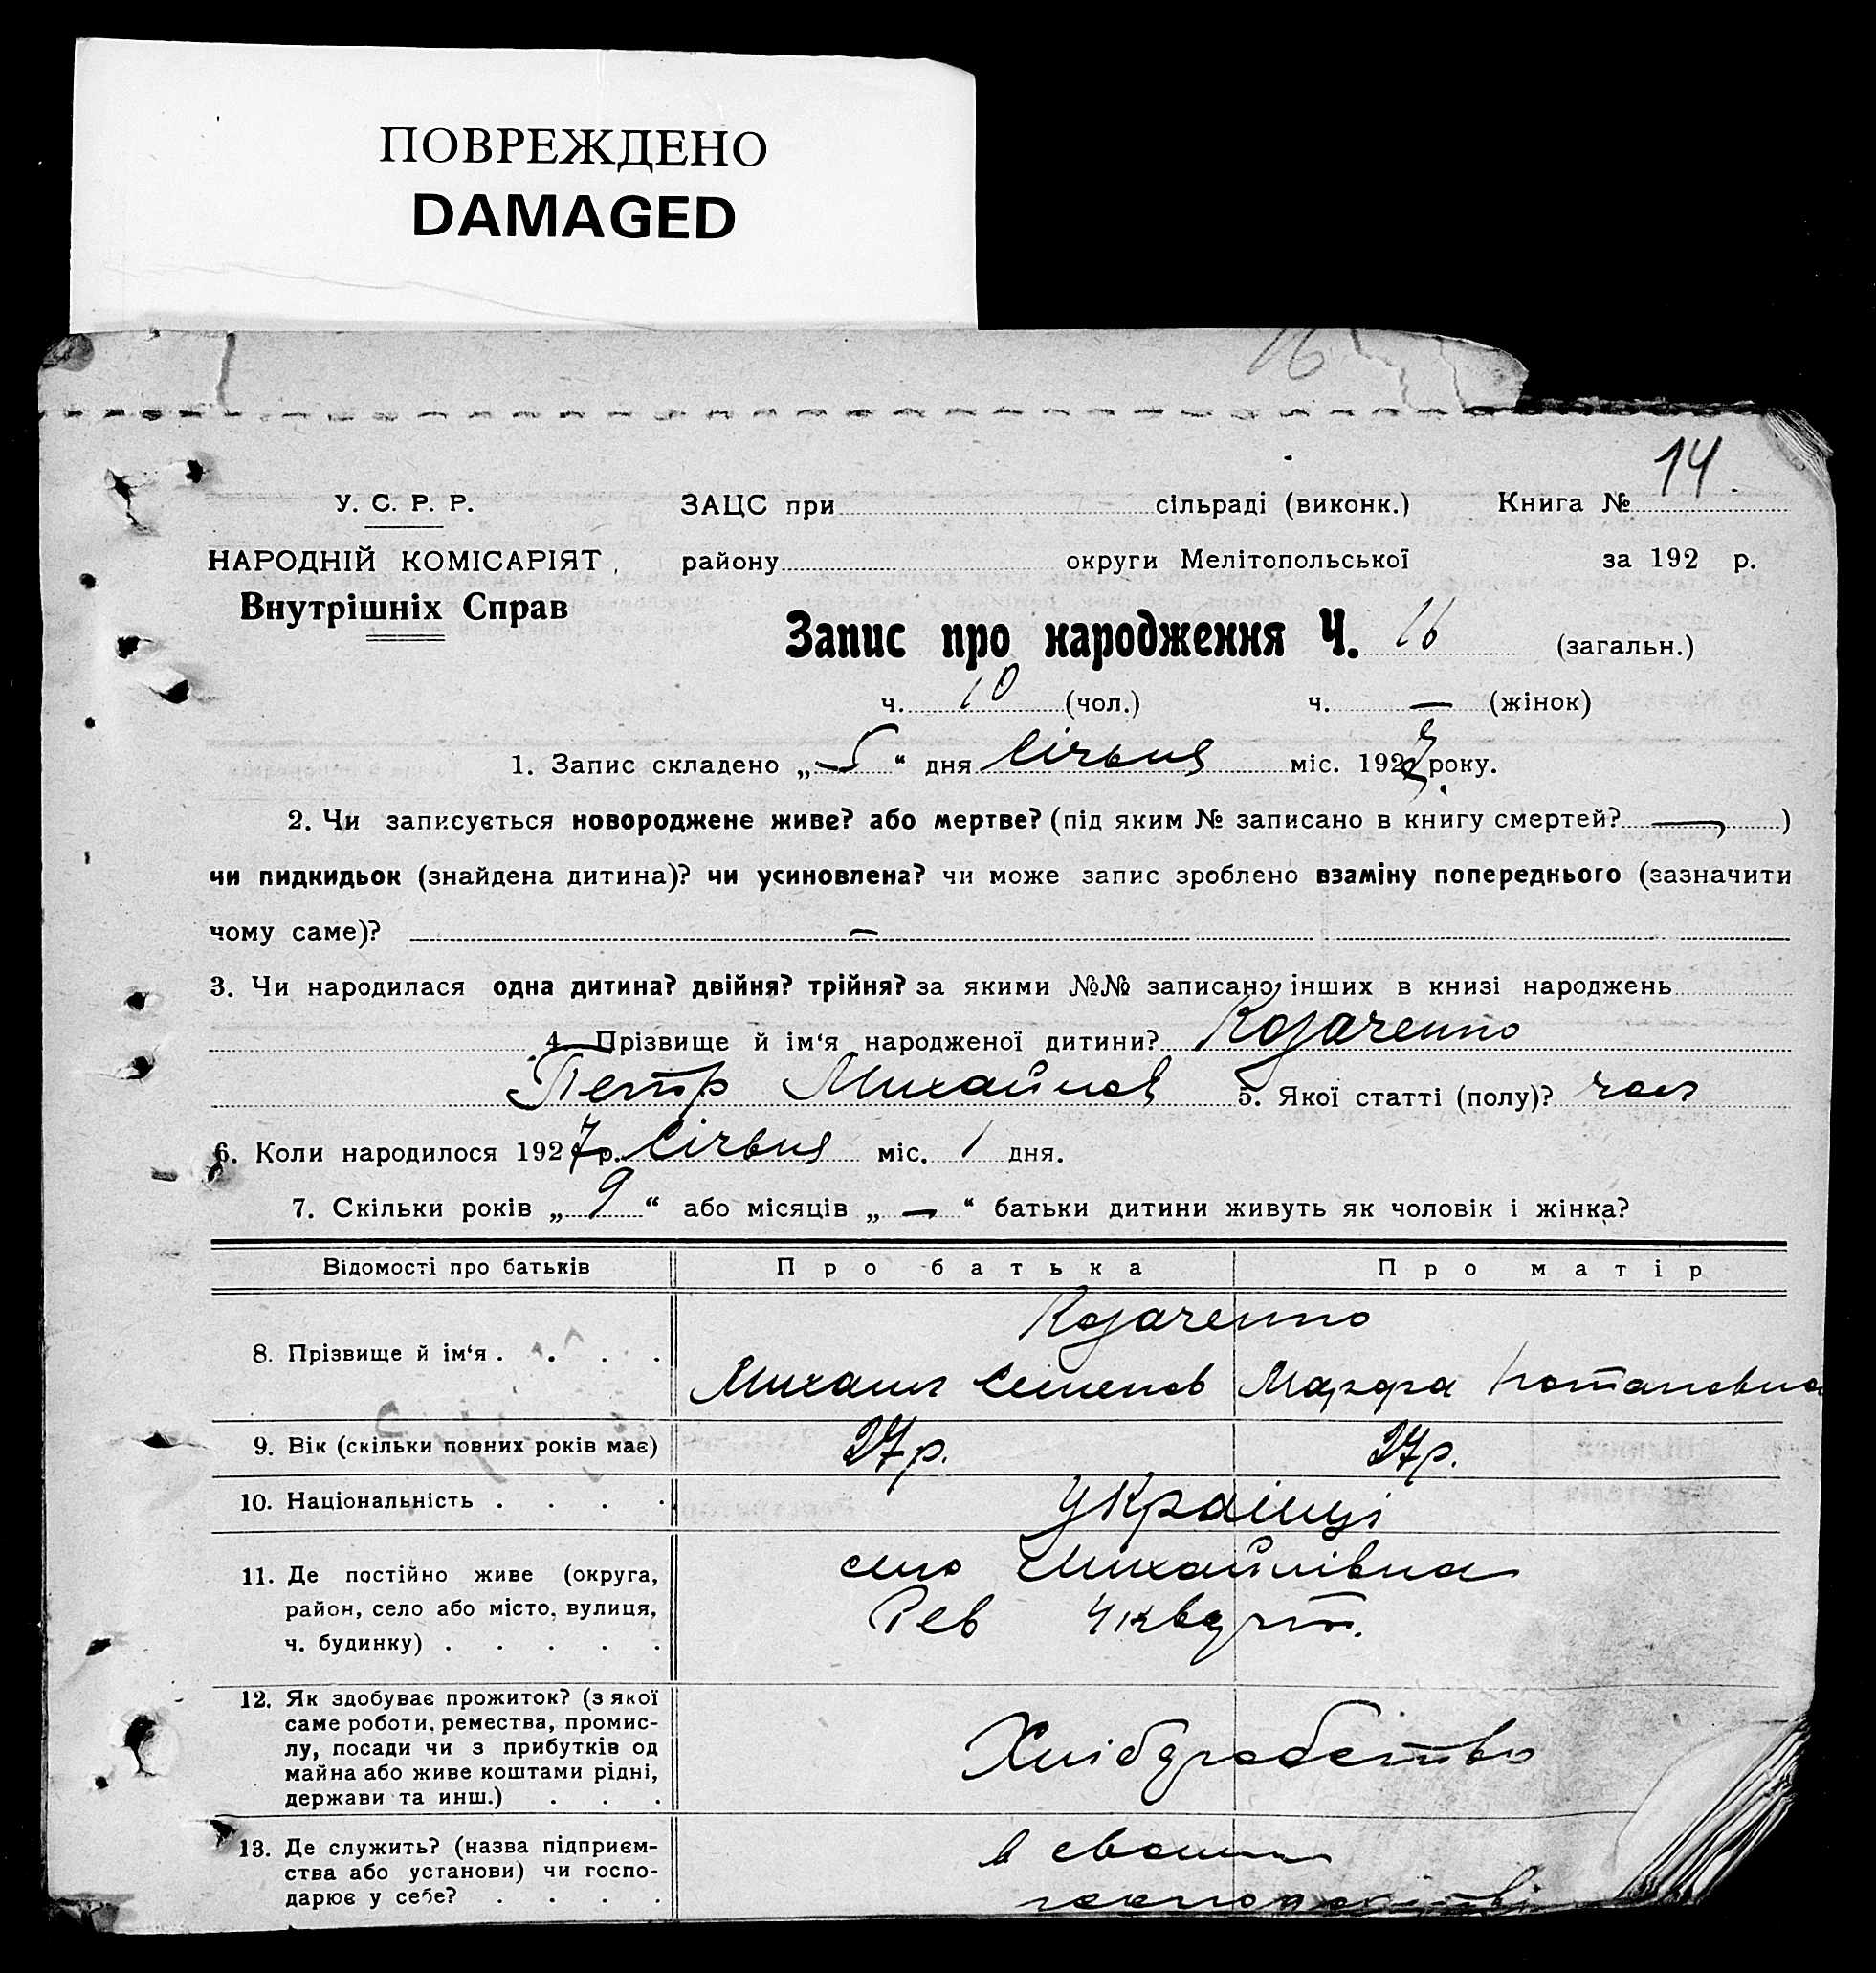 ПОВРЕЖДЕНО
DAMAGED
16
14.
У. С. Р. Р. ЗАЦС при сільраді (виконк.) Книга №
НАРОДНІЙ КОМІСАРІЯТ району округи Мелітопольської за 192 р.
Внутрішніх Справ
Запис про народження Ч. 16 (загальн.)
ч. 10 (чол.) ч. — (жінок)
1. Запис складено „5“ дня Січня міс. 1927 року.
2. Чи записується новороджене живе? або мертве? (під яким № записано в книгу смертей? — )
чи пидкидьок (знайдена дитина)? чи усиновлена? чи може запис зроблено взаміну попереднього (зазначити
чому саме)? —
3. Чи народилася одна дитина? двійня? трійня? за якими №№ записано інших в книзі народжень
4. Прізвище й ім‘я народженої дитини? Козаченко
Петр Михайлов 5. Якої статті (полу)? чол
6. Коли народилося 1927 р. Січня міс. 1 дня.
7. Скільки років „9“ або місяців „—“ батьки дитини живуть як чоловік і жінка?
Відомості про батьків Про батька Про матір
Козаченко
8. Прізвище й ім‘я . . . .
Михаил Семенов Марфа Потаповна
9. Вік (скільки повних років має) 27 р. 27 р.
10. Національність . . . . Українці
11. Де постійно живе (округа, село Михайлівка
район, село або місто, вулиця, Рев 4 кв
ч. будинку) . . . . .
12. Як здобуває прожиток? (з якої
саме роботи, ремества, промис-
лу, посади чи з прибутків од Хліборобство
майна або живе коштами рідні,
держави та инш.) . . .
13. Де служить? (назва підприєм- в своим
ства або установи) чи госпо-
дарює у себе? . . . .